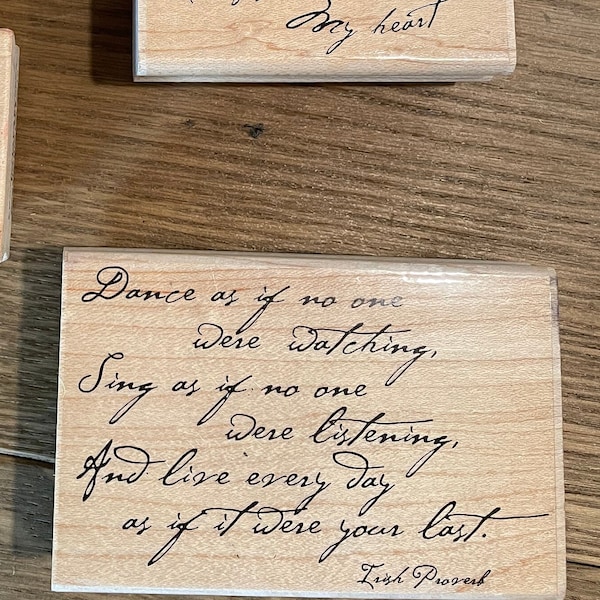 My heart
Dance as if no one
were watching,
Sing as if no one
were listening,
And live every day
as if it were your last.
Irish Proverb